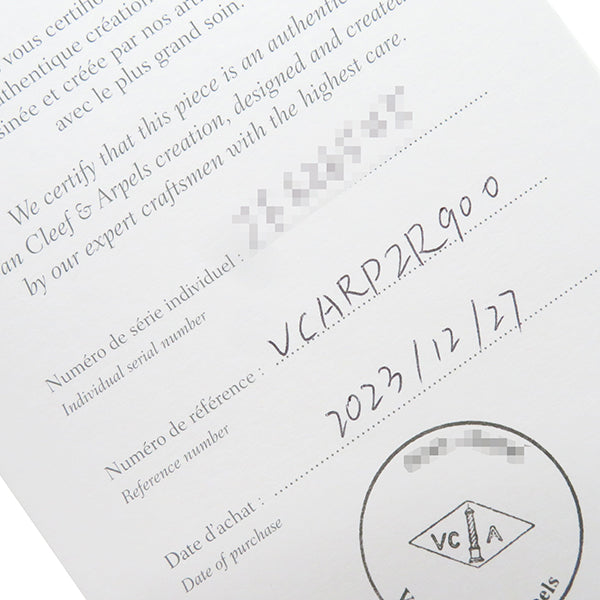 vous certifio
uthentique création
sinée et créée par nos arti
avec le plus grand soin.
We certify that this piece is an authentic
an Cleef & Arpels creation, designed and created
by our expert craftsmen with the highest care.
Numéro de série individuel :
Individual serial number
Numéro de référence : VCARP2R900
Reference number
Date d'achat : 2023/12/27
Date of purchase
VC A
els